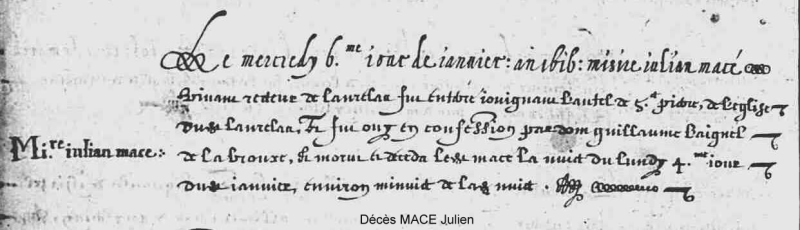 Le mercredy 6.me iour de ianvier: an 1616: missire iulian macé
vivant recteur de Laurelas fut enterré iouignant l'autel de S.t piarre, de l'eglise
dud Laurelas, & fut ouy en confession par dom guillaume baignel
Mi.re iulian mace: de la brouxe, & morut et deceda led mace la nuit du lundy 4.me iour
dud ianvier, environ minuit de lad nuit.
Décès MACE Julien